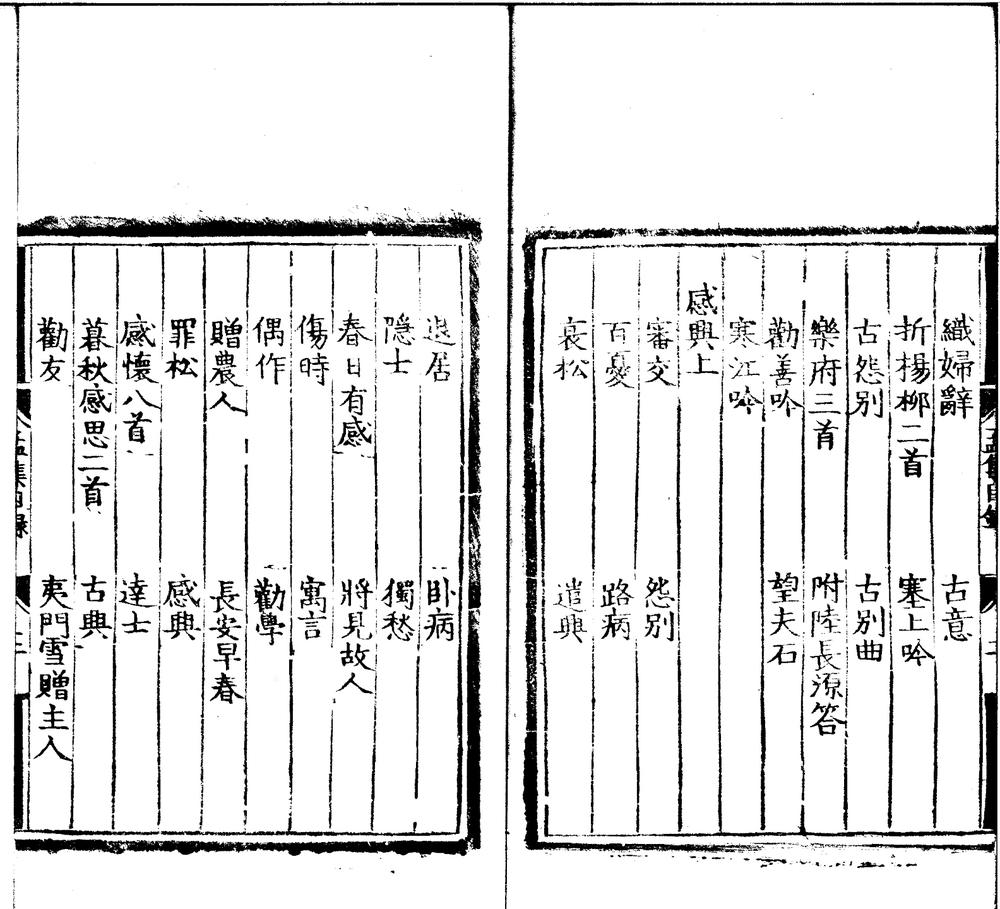 織婦辭　古意
折楊柳二首　塞上吟
古怨别　古别曲
樂府三首　附陸長源荅
勸善吟　望夫石
寒江吟
感興上
審交　怨别
百憂　路病
哀松　遣興
退居　卧病
隱士　獨愁
春日有感　將見故人
傷時　寓言
偶作　勸學
贈農人　長安早春
罪松　感興
感懷八首　達士
暮秋感思二首　古典
勸友　夷門雪贈主人
孟集目録　三